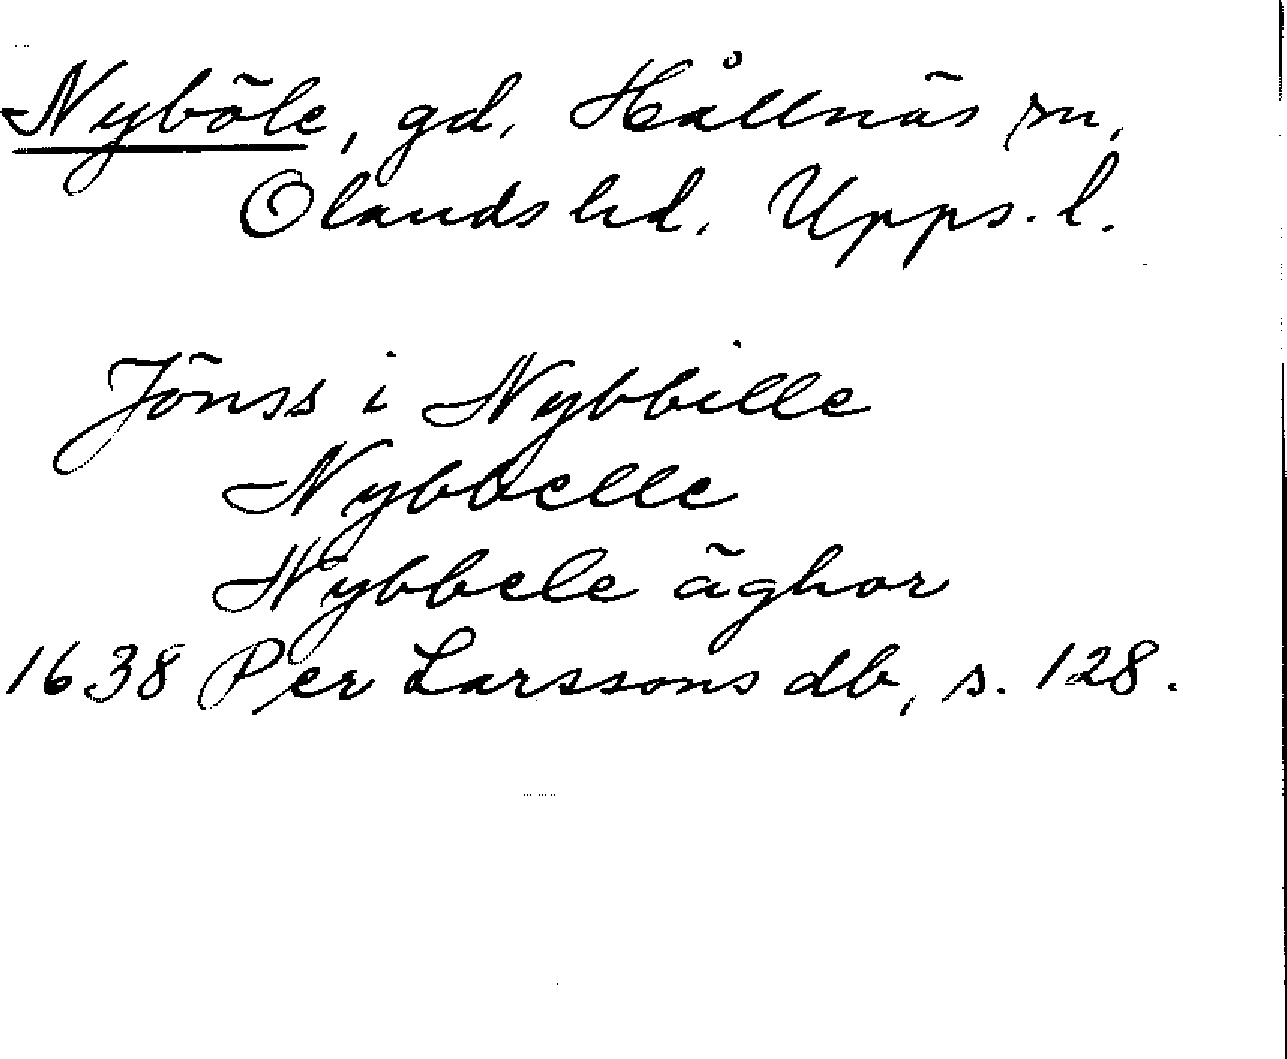 Nyböle, gd, Hållnäs sn,
Olands hd, Upps. l.
Jönss i Nybbille
Nybbelle
Nybbele äghor
1638 Per Larssons db, s. 128.